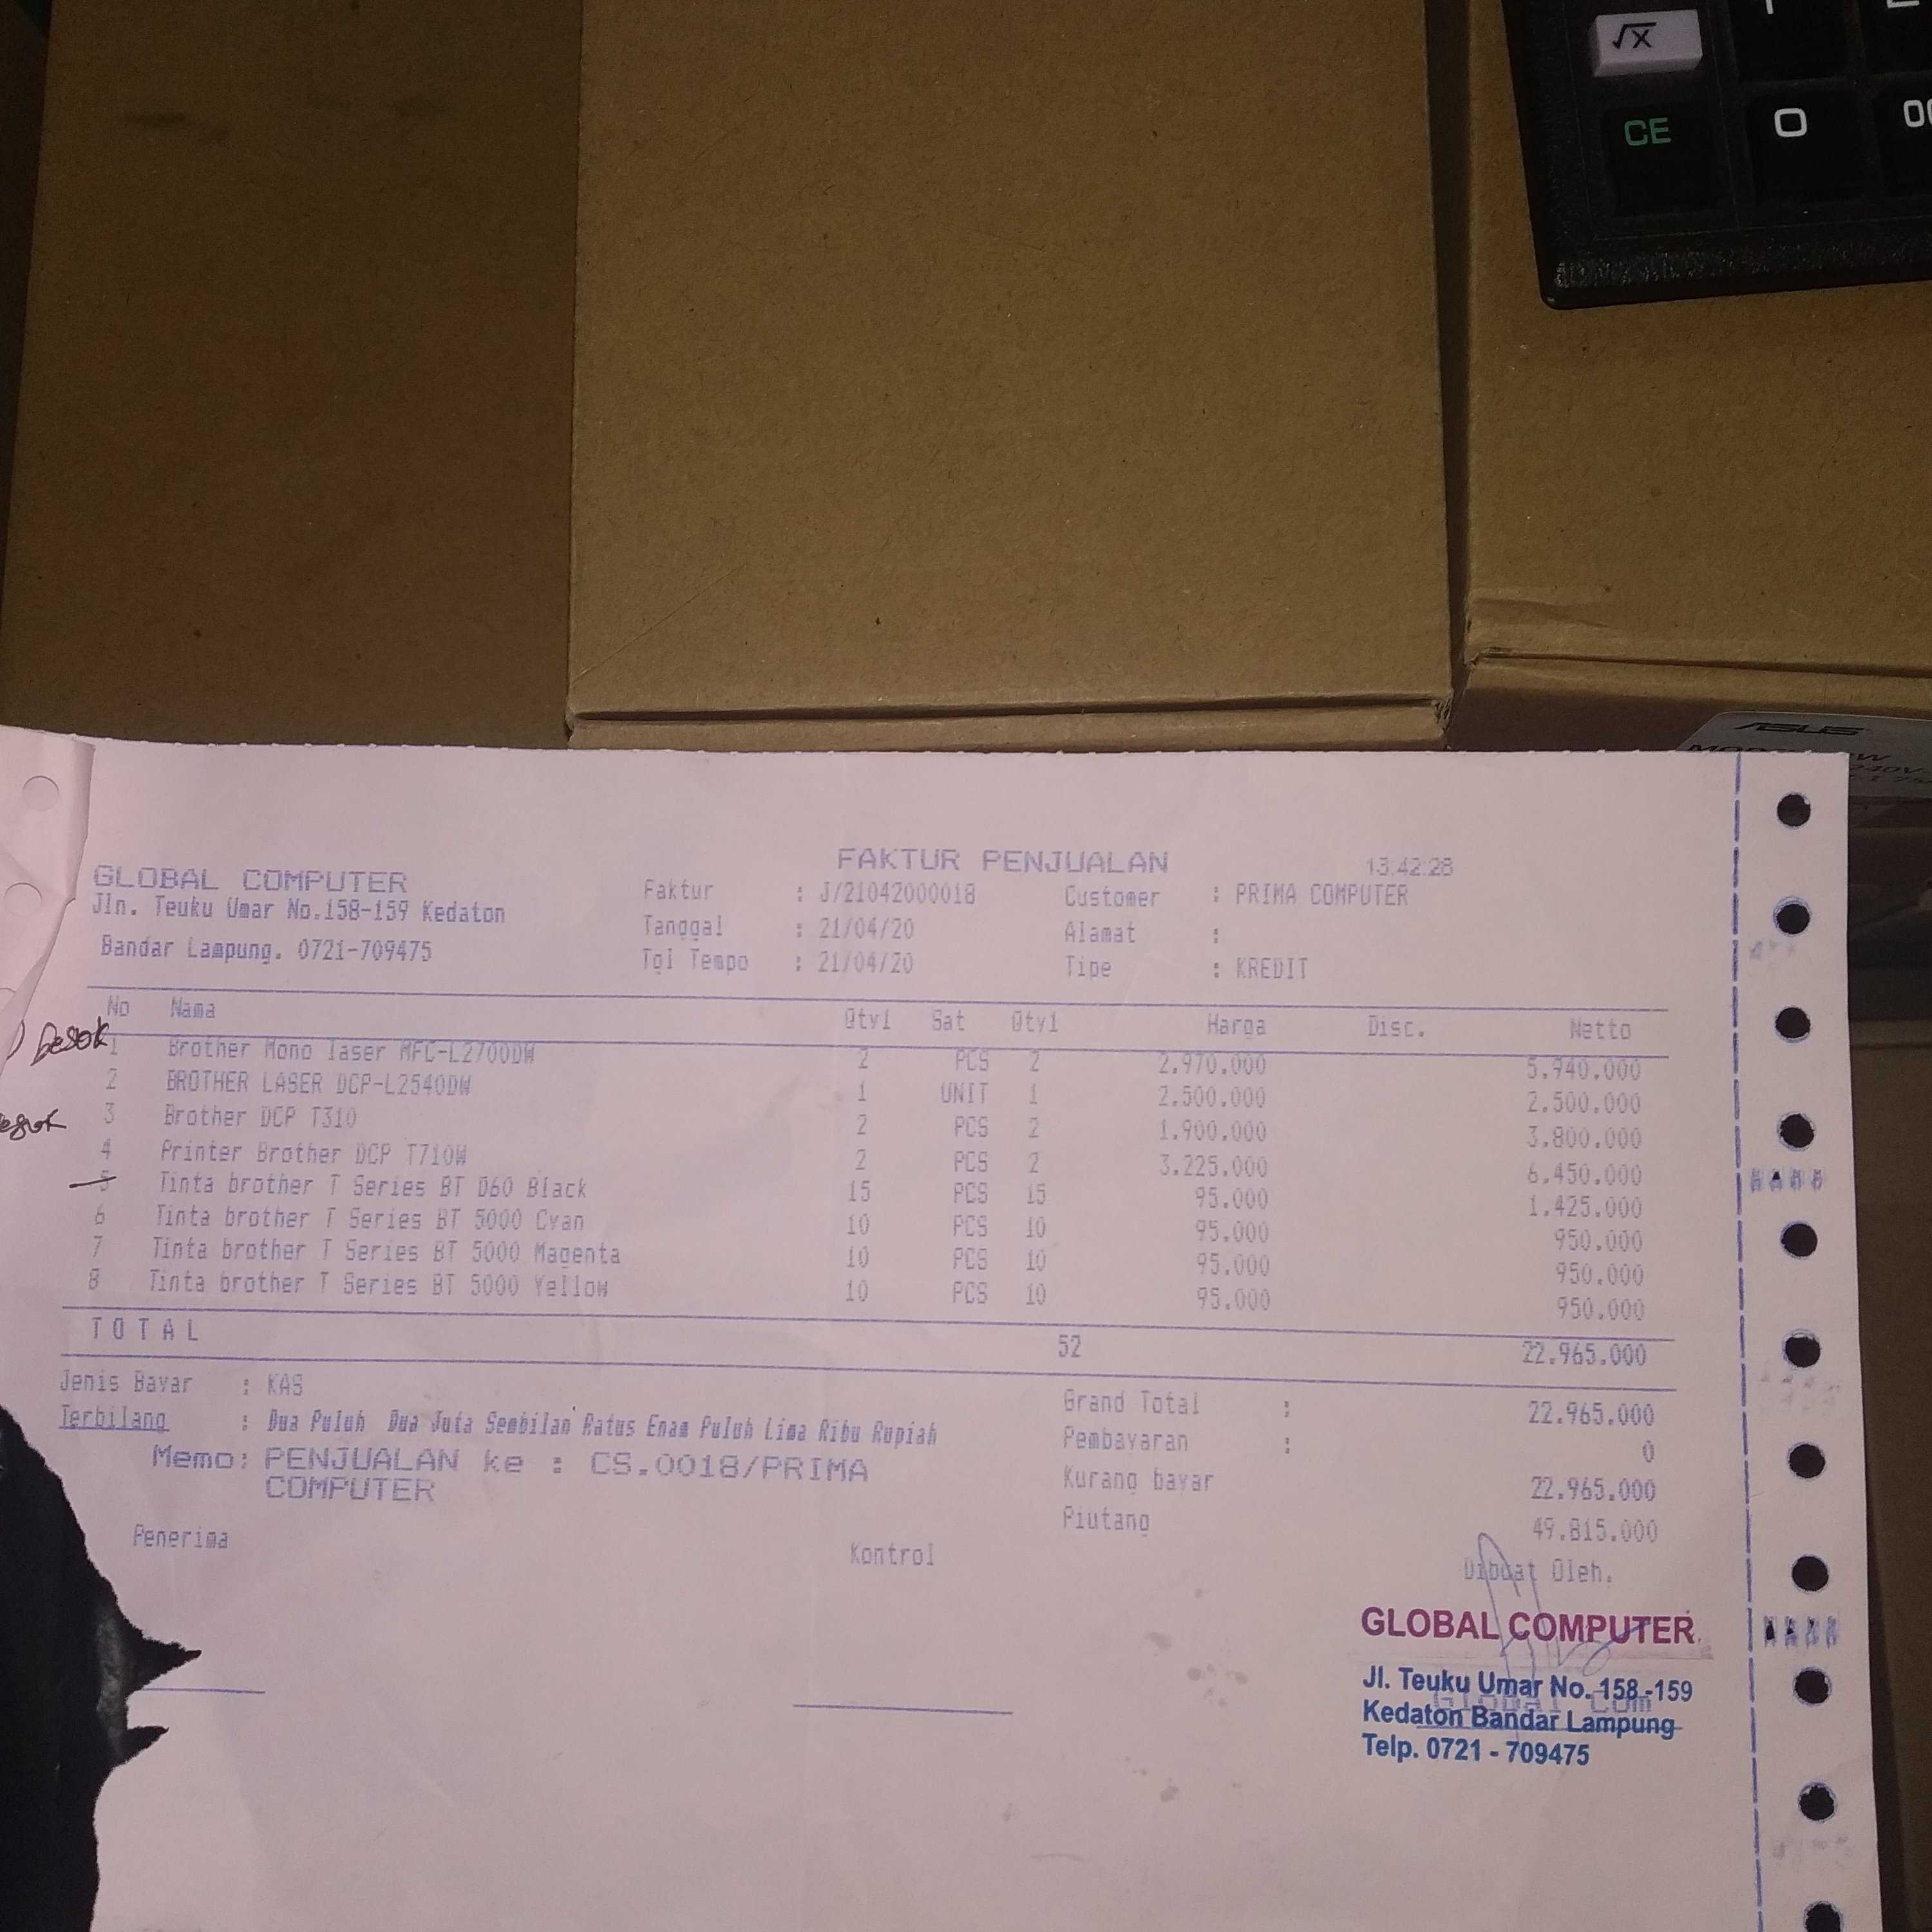 √x
CE 0
ASUS
FAKTUR PENJUALAN 13:42:28
GLOBAL COMPUTER
Jln. Teuku Umar No.158-159 Kedaton
Bandar Lampung. 0721-709475
Faktur : J/21042000018 Customer : PRIMA COMPUTER
Tanggal : 21/04/20 Alamat :
Tgl Tempo : 21/04/20 Tipe : KREDIT
No Nama Qty1 Sat Qty1 Harga Disc. Netto
besok
1 Brother Mono laser MFC-L2700DW 2 PCS 2 2.970.000 5.940.000
2 BROTHER LASER DCP-L2540DW 1 UNIT 1 2.500.000 2.500.000
3 Brother DCP T310 2 PCS 2 1.900.000 3.800.000
4 Printer Brother DCP T710W 2 PCS 2 3.225.000 6.450.000
5 Tinta brother T Series BT D60 Black 15 PCS 15 95.000 1.425.000
6 Tinta brother T Series BT 5000 Cyan 10 PCS 10 95.000 950.000
7 Tinta brother T Series BT 5000 Magenta 10 PCS 10 95.000 950.000
8 Tinta brother T Series BT 5000 Yellow 10 PCS 10 95.000 950.000
TOTAL 52 22.965.000
Jenis Bayar : KAS
Terbilang : Dua Puluh Dua Juta Sembilan Ratus Enam Puluh Lima Ribu Rupiah
Memo: PENJUALAN ke : CS.0018/PRIMA
COMPUTER
Grand Total : 22.965.000
Pembayaran : 0
Kurang bayar 22.965.000
Piutang 49.815.000
Penerima Kontrol Dibuat Oleh.
GLOBAL COMPUTER
Jl. Teuku Umar No. 158 -159
Kedaton Bandar Lampung
Telp. 0721 - 709475